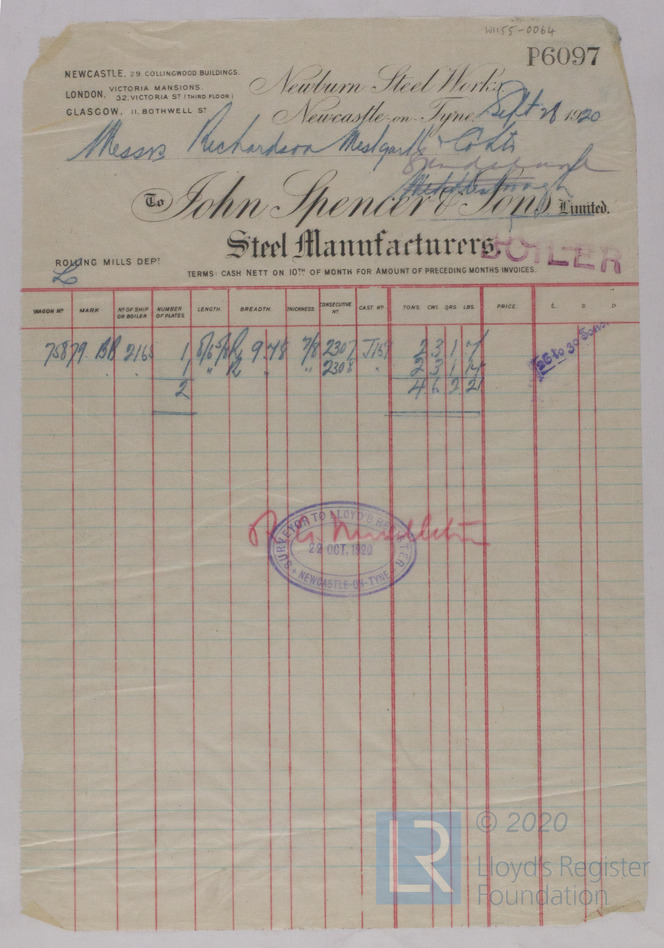 W1155-0064
P6097
NEWCASTLE, 29 COLLINGWOOD BUILDINGS.
LONDON, VICTORIA MANSIONS.
32, VICTORIA ST (THIRD FLOOR)
GLASGOW, 11, BOTHWELL ST
Newburn Steel Works
Newcastle-on-Tyne, Sept 28 1920
Messrs Richardson Westgarth & Co Ltd
To John Spencer & Sons, Limited.
Steel Manufacturers.
BOILER
ROLLING MILLS DEPT
TERMS: CASH NETT ON 10TH OF MONTH FOR AMOUNT OF PRECEDING MONTHS INVOICES.
WAGON No MARK No OF SHIP OR BOILER NUMBER OF PLATES. LENGTH. BREADTH. THICKNESS CONSECUTIVE No CAST No TONS. CWT. QRS. LBS. PRICE. £ S D
75879 BB 2165 1 9.48 7/8 2307 2 3 1 7
1 " " 2308 " 2 3 1 14
2 4 6 2 21
26 to 30 Tons.
SURVEYOR TO LLOYD'S REGISTER
22 OCT. 1920
NEWCASTLE-ON-TYNE
LR
© 2020
Lloyd's Register
Foundation